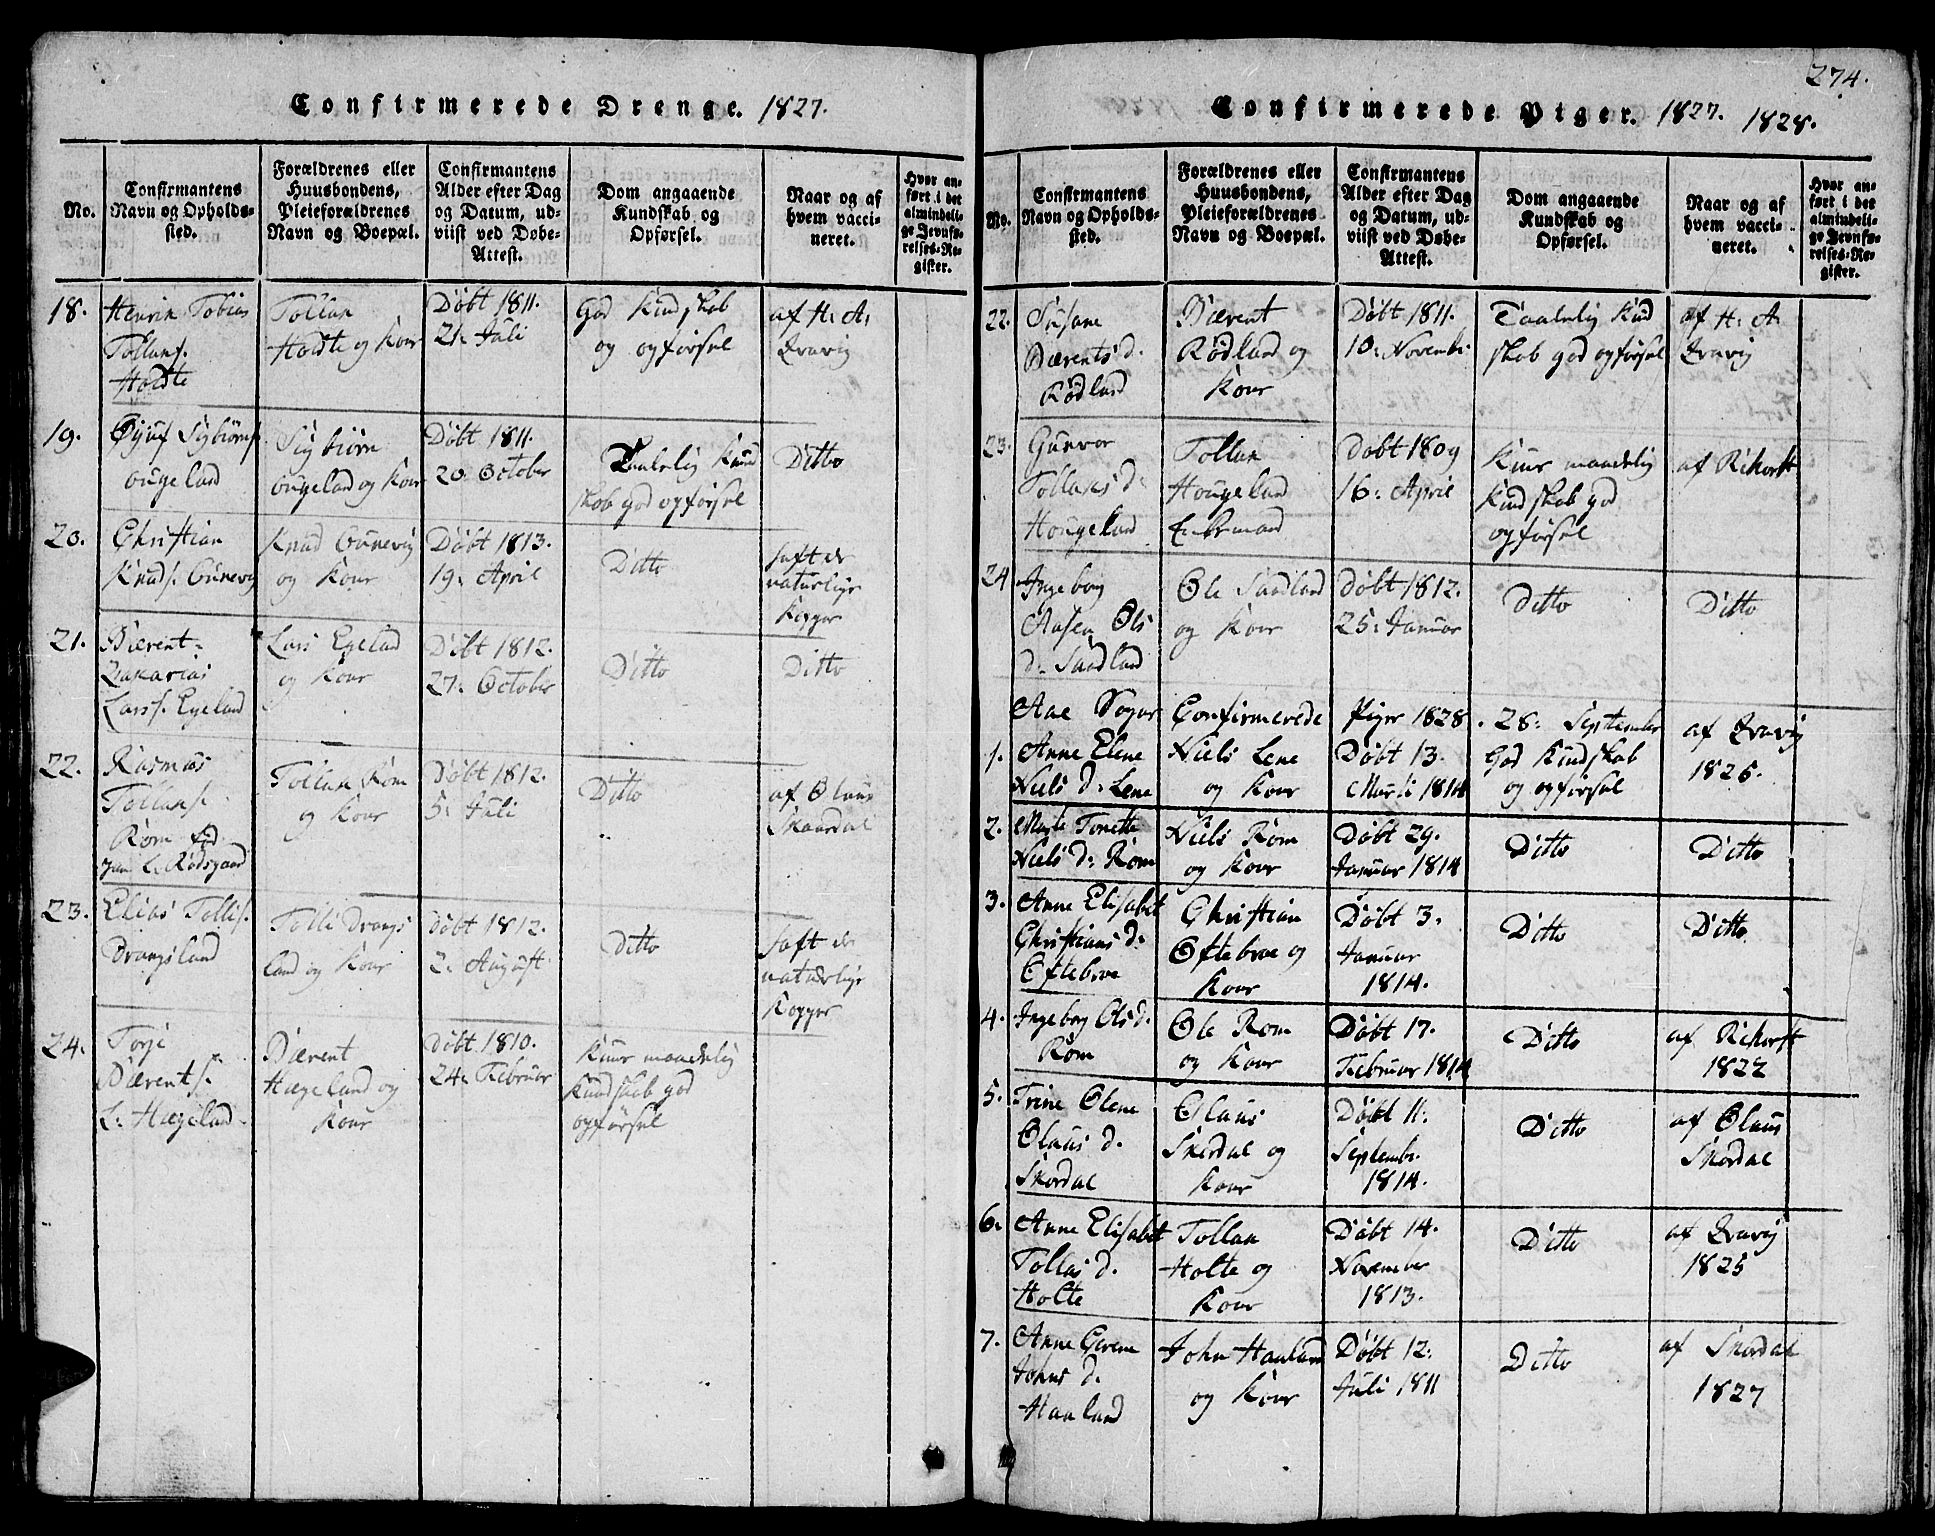 Confirmerede Drenge. 1827.
No.
Confirmantens
Navn og Opholds-
sted.
Forældrenes eller
Huusbondens,
Pleieforældrenes
Navn og Boepæl.
Confirmantens
Alder efter Dag
og Datum, ud-
viist ved Døbe-
Attest.
Dom angaaende
Kundskab og
Opførsel.
Naar og af
hvem vacci-
neret.
Hvor an-
ført i det
almindeli-
ge Jevnfø-
relses-Re-
gister.
18.
Henrik Tobias
Tollaks.
Holdte
Tollak
Holdte og Kone
Døbt 1811.
21. Juli
God Kundskab
og opførsel
af H: A:
Qvavig
19.
Sigbiørns.
ougeland
Sigbiørn
ougeland og Kone
Døbt 1811.
20. October
Taalelig Kund
skab god opførsel
Ditto
20.
Christian
Knuds. Gunevig
Knud Gunevig
og Kone
Døbt 1813.
19. April
Ditto
haft de
naturlige
Kopper
21.
Bærent
Zakarias
Larss. Egeland
Lars Egeland
og Kone
Døbt 1812.
27. October
Ditto
Ditto
22.
Rasmus
Tollaks.
Røm
Rødsgaard
Tollak Røm
og Kone
Døbt 1812.
5. Juli
Ditto
af Olaus
Skaardal
23.
Elias Tollis.
Drangsland
Tolli Drangs
land og Kone
Døbt 1812.
2. August
Ditto
haft de
naturlige
Kopper
24.
Torje
Bærents.
L. Hægeland
Bærent
Hægeland og
Kone
Døbt 1810.
24. Februar
Kuns maadelig
Kundskab god
opførsel
274.
Confirmerede Piger. 1827. 1828.
No.
Confirmantens
Navn og Opholds-
sted.
Forældrenes eller
Huusbondens,
Pleieforældrenes
Navn og Boepæl.
Confirmantens
Alder efter Dag
og Datum, ud-
viist ved Døbe-
Attest.
Dom angaaende
Kundskab og
Opførsel.
Naar og af
hvem vacci-
neret.
Hvor an-
ført i det
almindeli-
ge Jevnfø-
relses-Re-
gister.
22.
Susane
Bærents d.
Rødland
Bærent
Rødland og
Kone
Døbt 1811.
10. Novemb:
Taalelig Kund
skab god opførsel
af H: A
Qvavig
23.
Gunvor
Tollaks d:
Hougeland
Tollak
Hougeland
Enkemand
Døbt 1809
16. April
Kuns maadelig
Kundskab god
opførsel
af Rikorft
24
Ingeborg
Aasea Ols
d. Saadland
Ole Saadland
og Kone
Døbt 1812.
25. Januar
Ditto
Ditto
Aae Sogns Confirmerede Piger 1828. 28. September
1.
Anne Elene
Niels d. Lene
Niels Lene
og Kone
Døbt 13.
Marti 1814
God Kundskab
og opførsel
af Qvavig
1826.
2.
Marte Tonette
Niels d: Røm
Niels Røm
og Kone
Døbt 29.
Januar 1814
Ditto
Ditto
3.
Anne Elisabet
Christians d:
Øftebroe
Christian
Øftebroe og
Kone
Døbt 3.
Januar
1814.
Ditto
Ditto
4.
Ingeborg Ols d.
Røm
Ole Røm
og Kone
Døbt 17.
Februar 1814
Ditto
af Rikorft
1822
5.
Trine Olene
Olaus d.
Skordal
Olaus
Skordal og
Kone
Døbt 11.
Septemb.
1814.
Ditto
af Olaus
Skordal
6.
Anne Elisabet
Tollas d.
Holte
Tollak
Holte og
Kone
Døbt 14.
November
1813.
Ditto
af Qvavig
1825
7.
Anne
Johns d.
Haaland
John Haaland
og Kone
Døbt 12.
Juli 1811
Ditto
af Skordal
1827